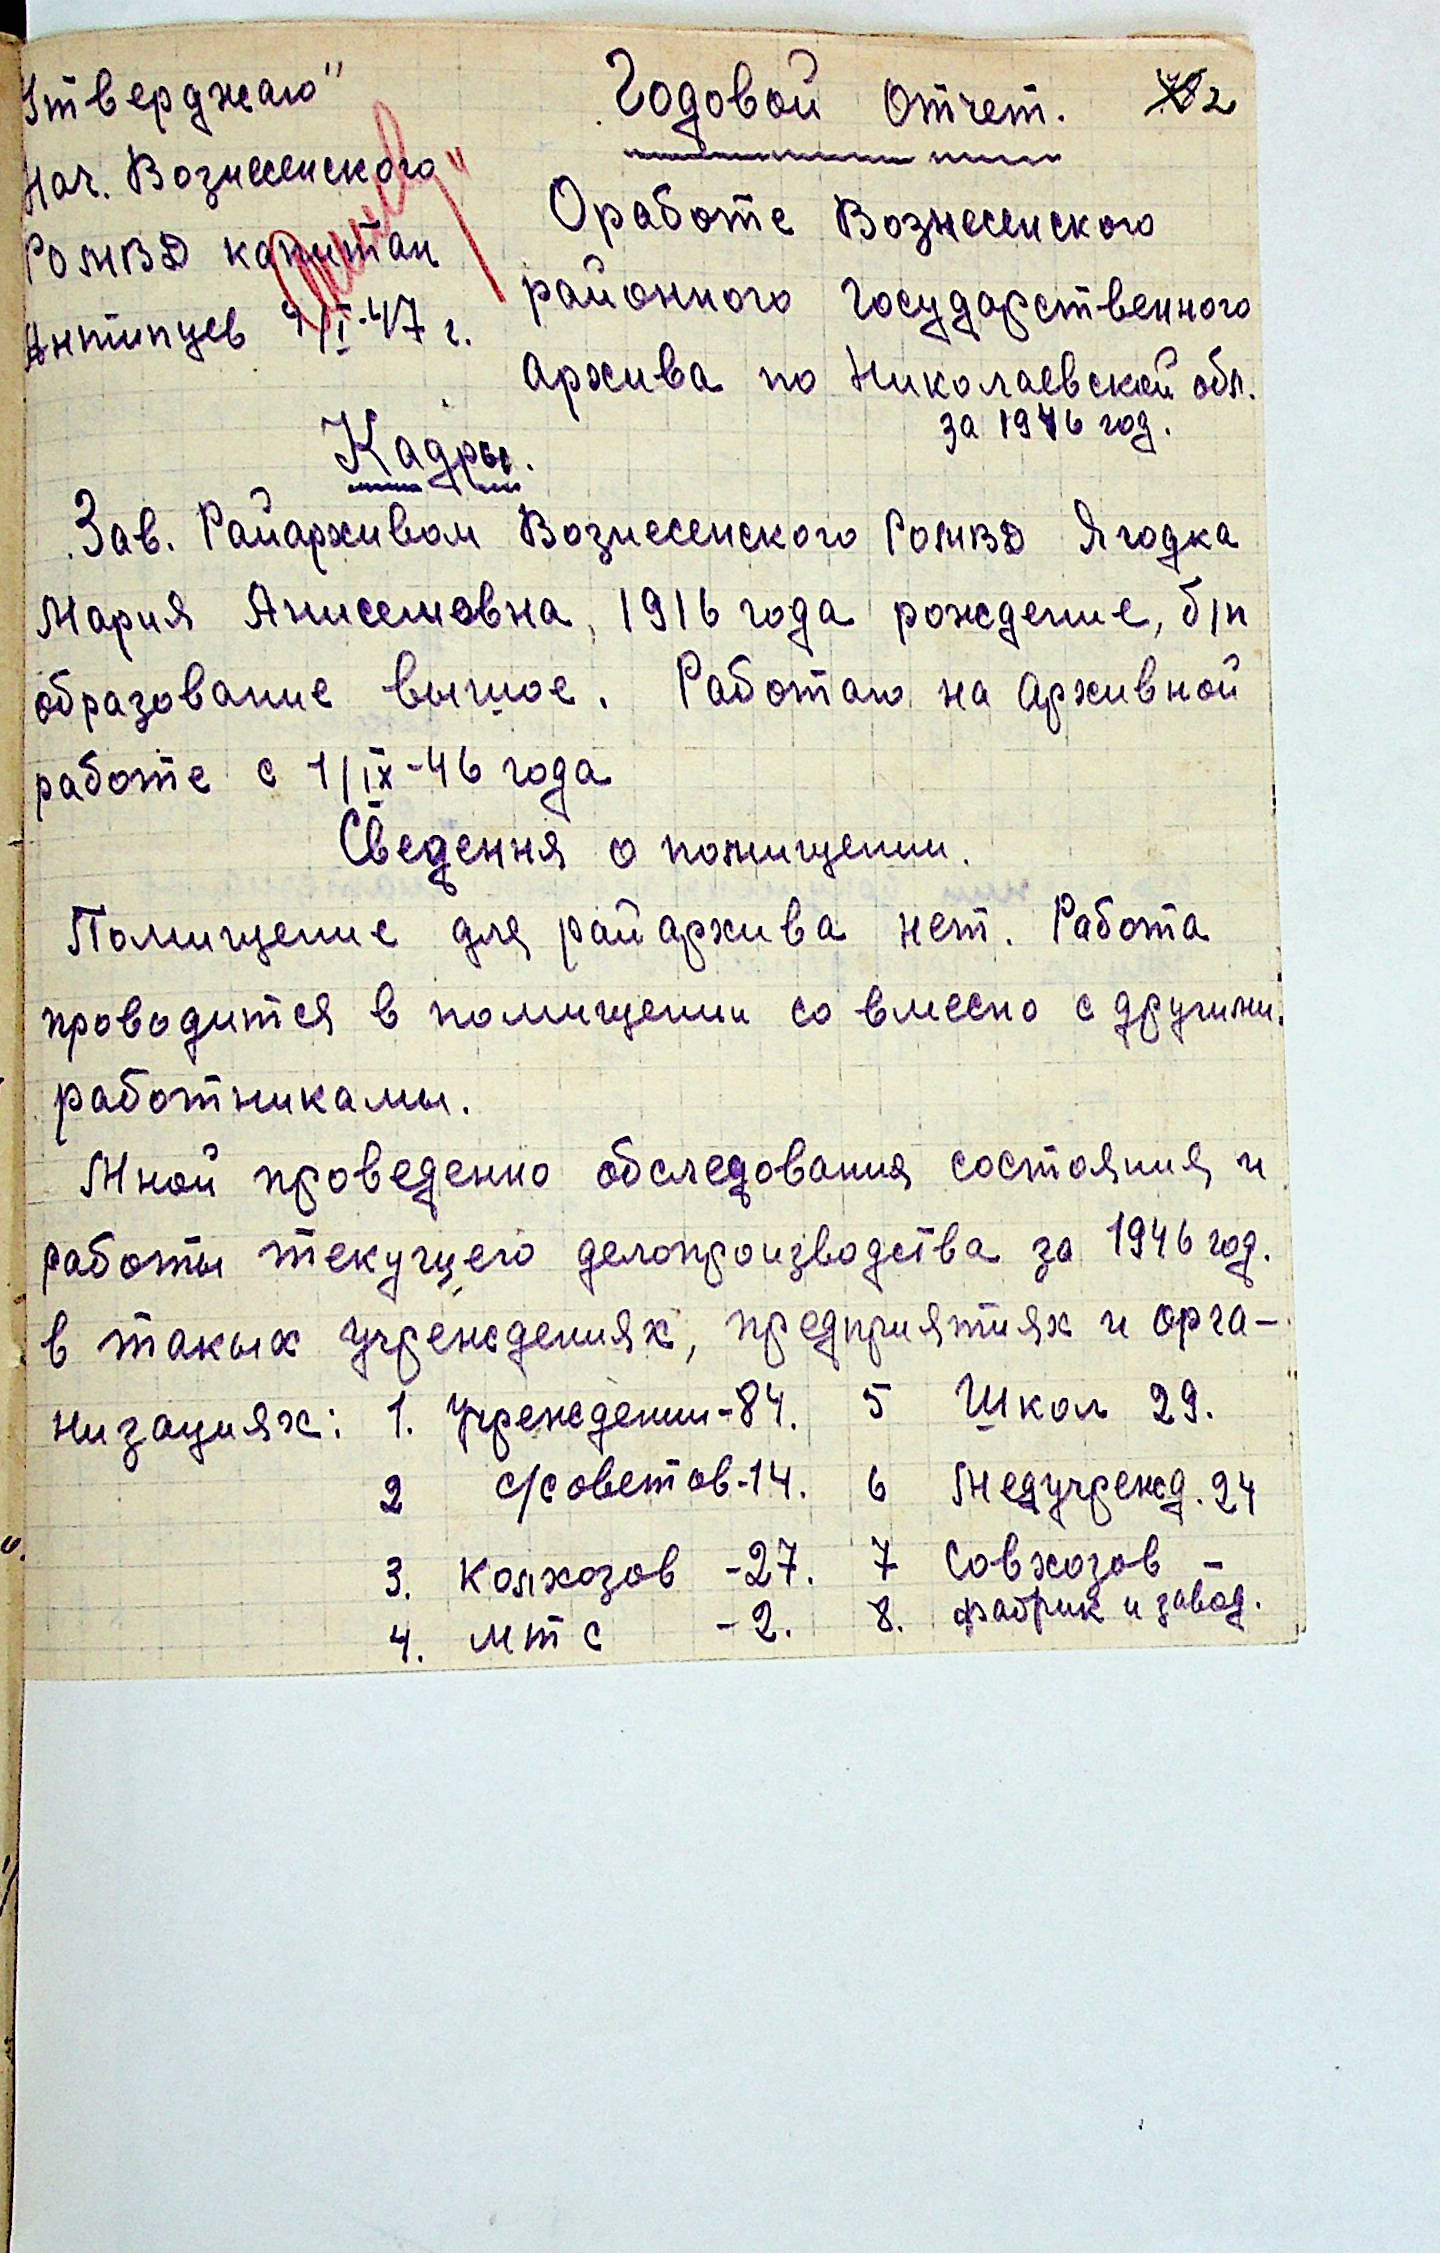 Утверджаю"
Нач. Вознесенского
РОМВД капитан
Антипцев 9/I-47 г.
Годовой отчет.
2
О работе Вознесенского
районного Государственного
Архива по Николаевской обл.
за 1946 год.
Кадры.
Зав. Райархивом Вознесенского РОМВД Ягодка
Мария Анисемовна, 1916 года рождение, б/п
образование высшое. Работаю на Архивной
работе с 1/IX-46 года
Сведення о помищении.
Помищение для райархива нет. Работа
проводится в помищении совмесно с другими
работниками.
Мной проведенно обследования состояния и
работы текущего делопроизводства за 1946 год.
в такых учреждениях, предприятиях и орга-
низациях: 1. Учреждении-84. 5 Школ 29.
2 с/советов-14. 6 Медучрежд. 24
3. Колхозов -27. 7 Совхозов -
4. МТС -2. 8. Фабрик и завод.